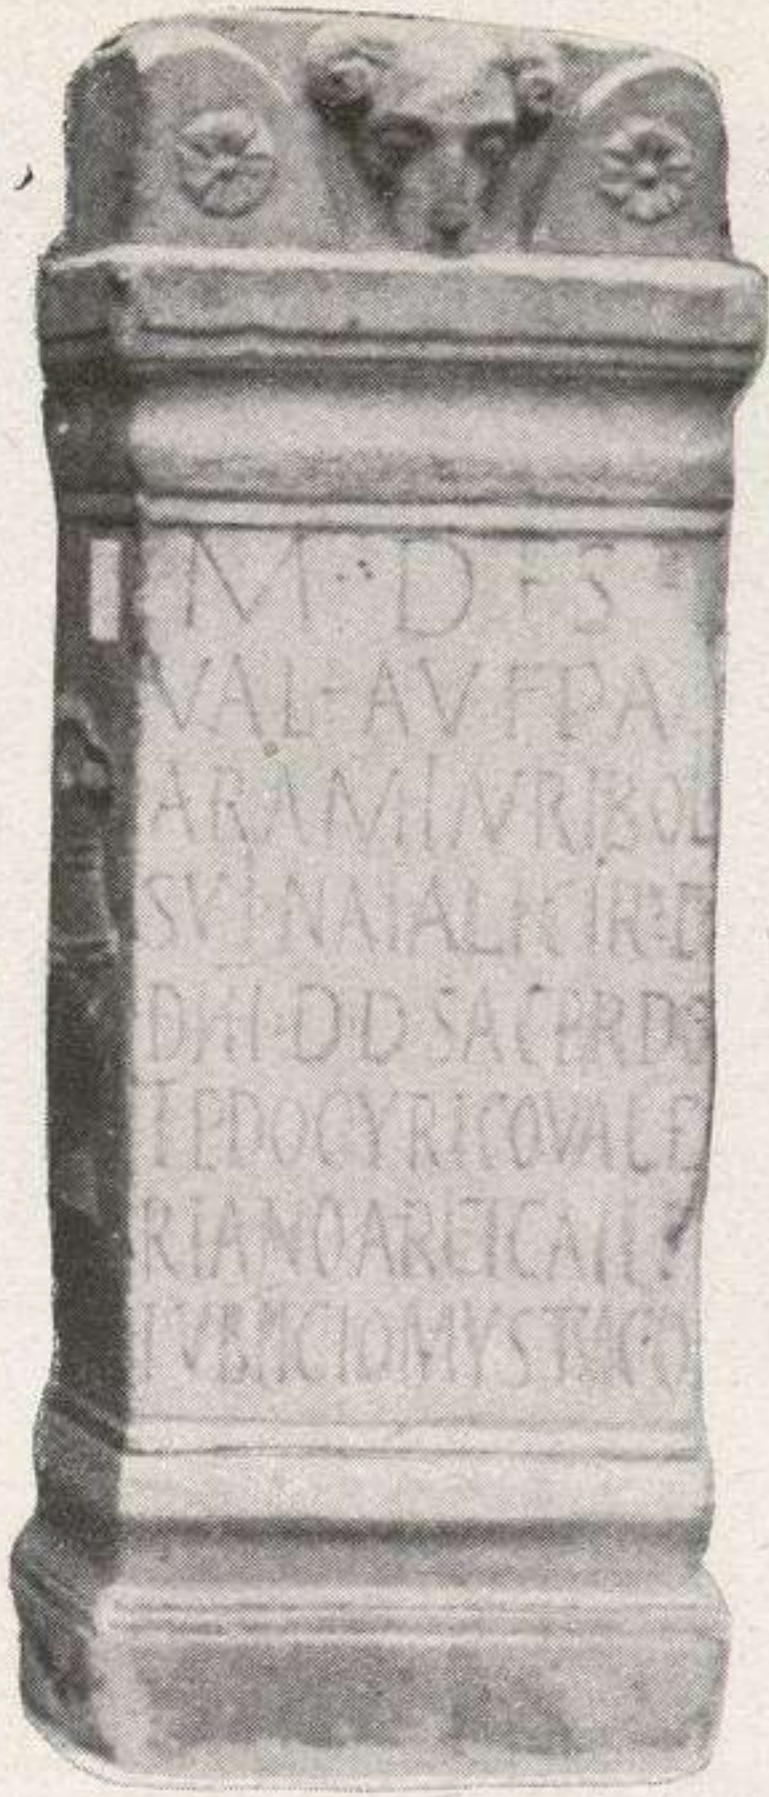 M · D · S
VAL · AVITA
ARAM TAVRIBOLI
SVI NATALICI RED
DITI · D · D · SACERDO
TE DOCYRICO VALE
RIANO ARCIGALLO
PVBLICIO MYSTICO